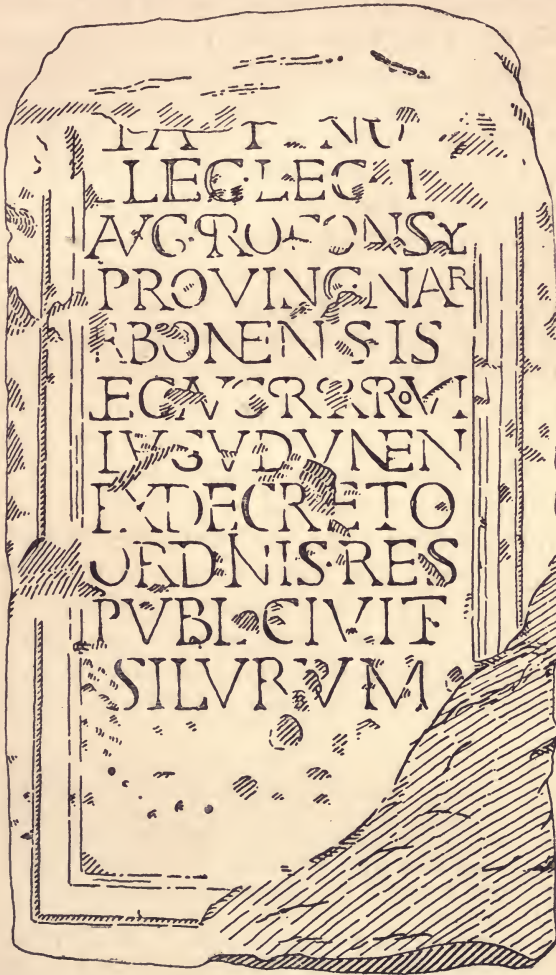 LEG·LEG·I
AVG·PROCONSV
PROVINC·NAR
RBONENSIS
LEG·AVG·PR·PR·PROVI
LVGVDVNEN
EX DECRETO
ORDINIS·RES
PVBL·CIVIT
SILVRVM